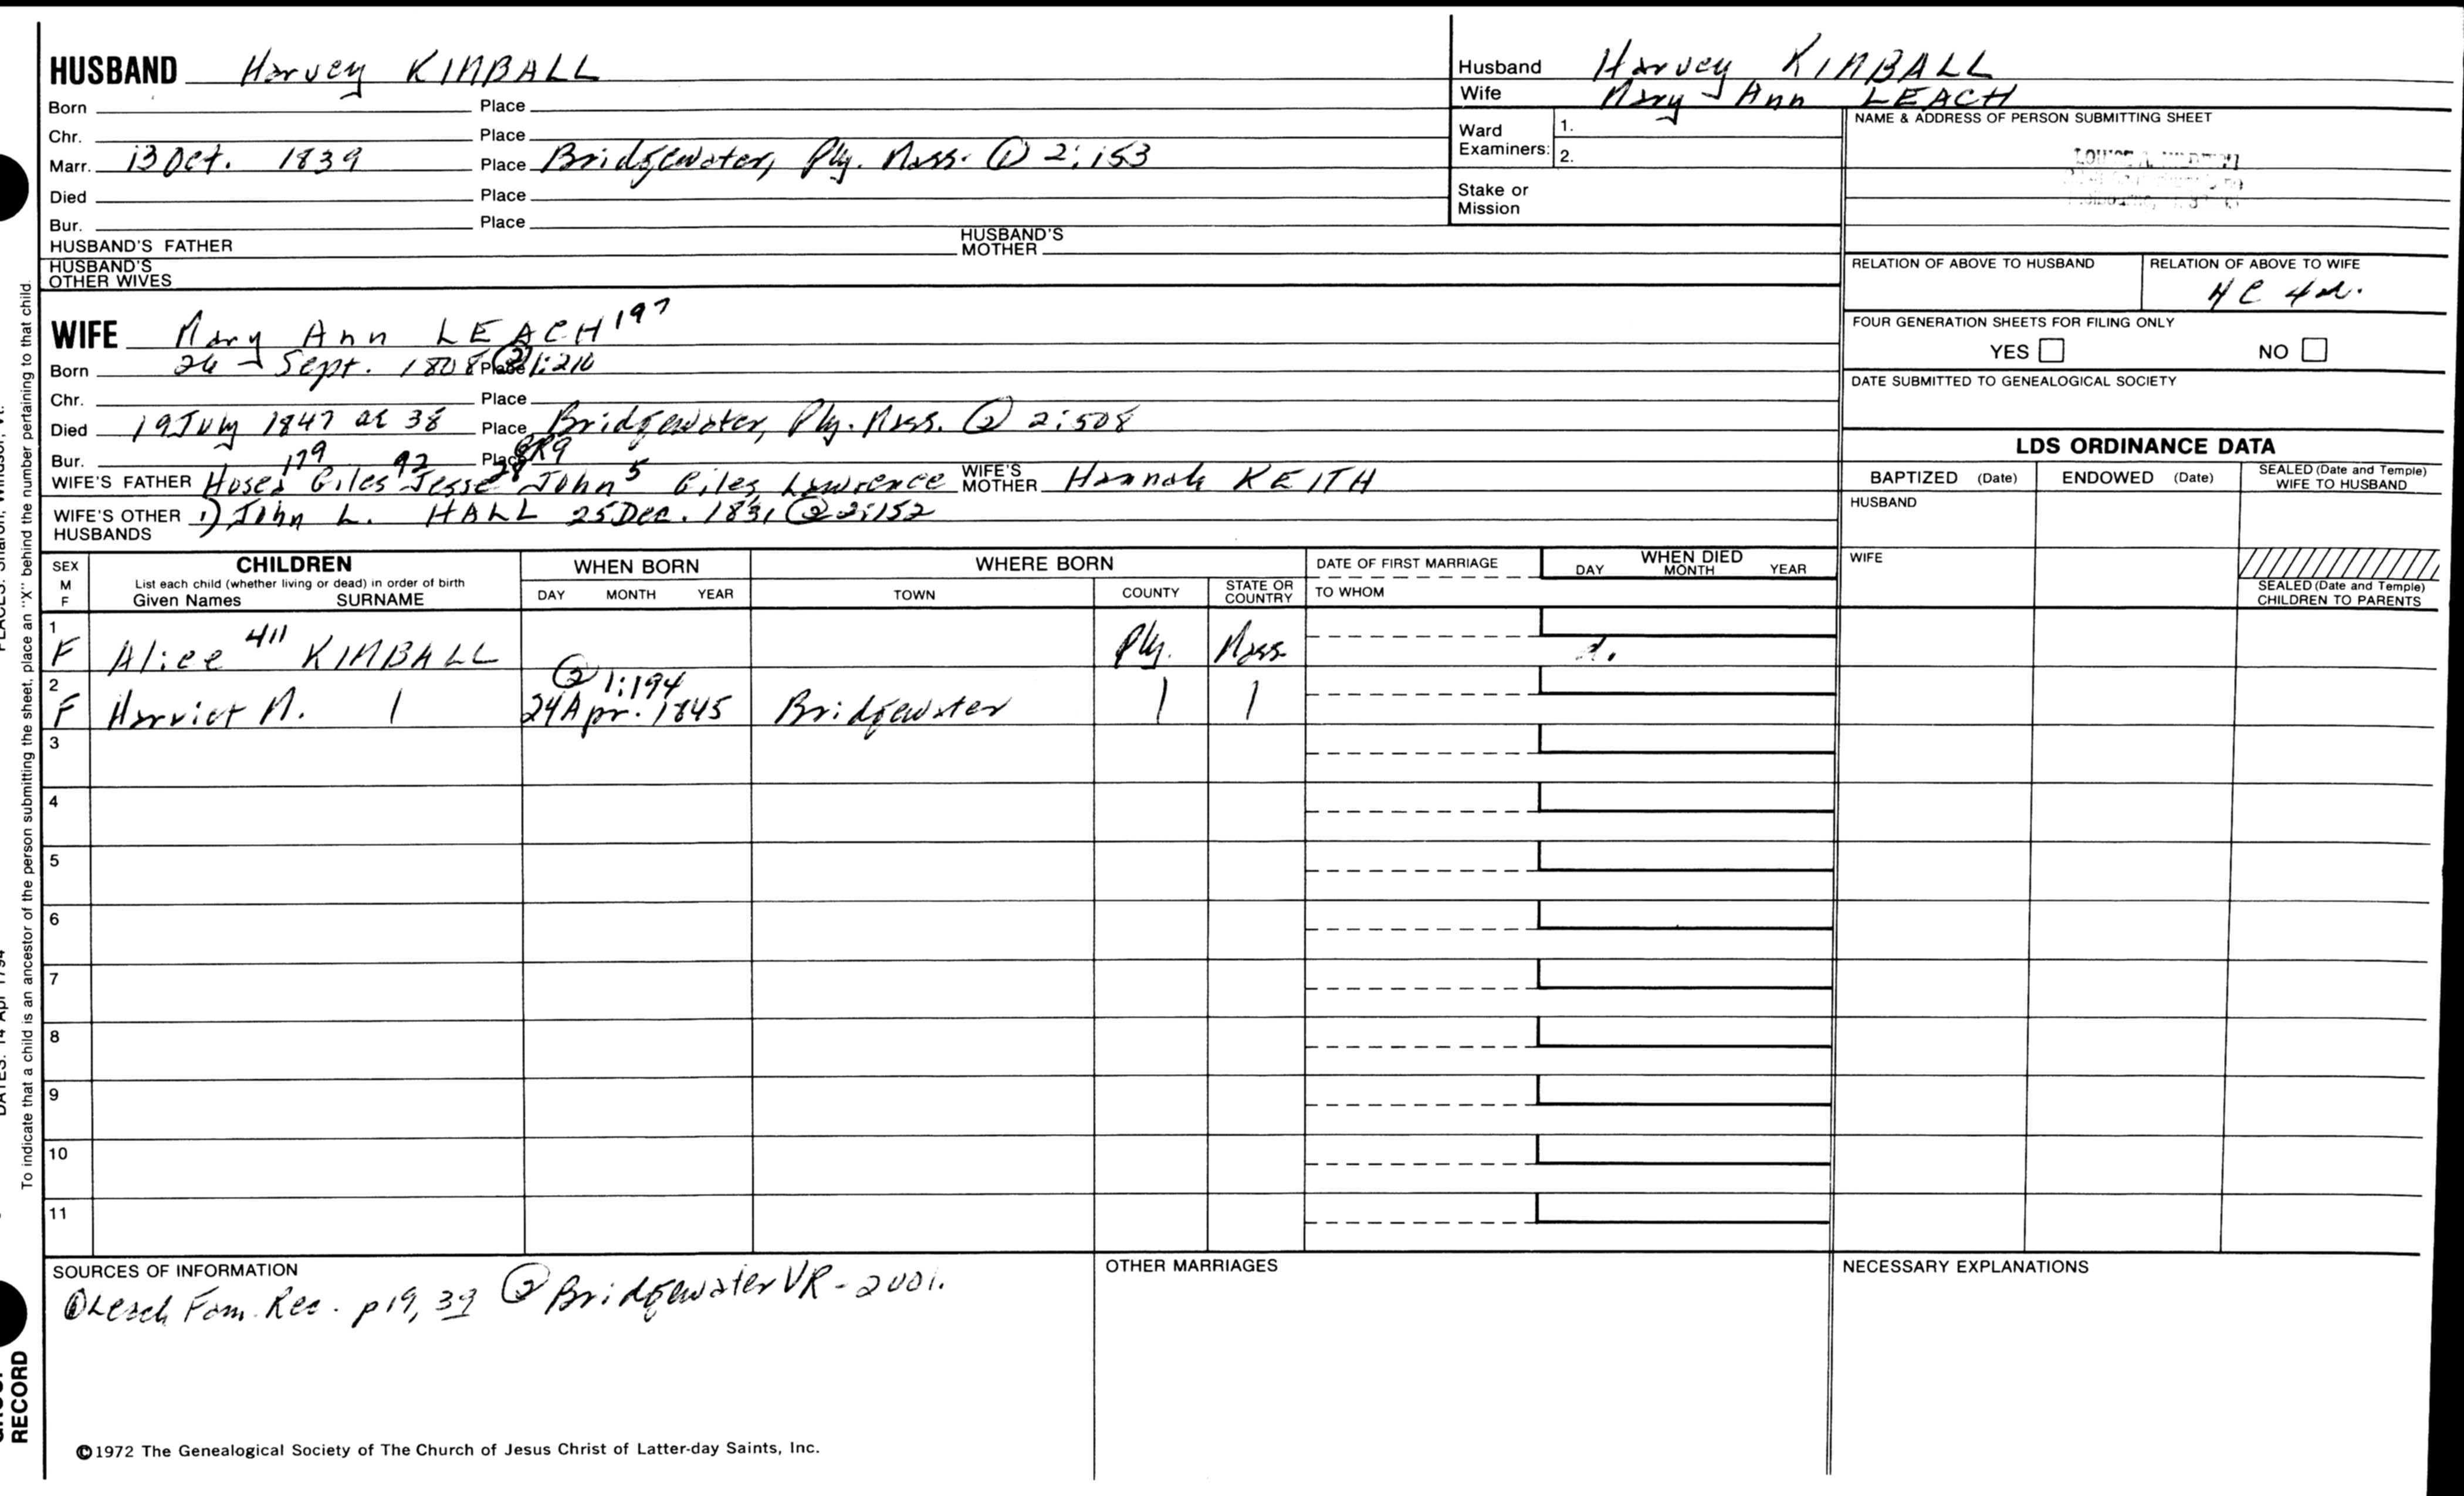 HUSBAND Harvey KIMBALL
Born Place
Chr. Place
Marr. 13 Oct. 1839 Place Bridgewater, Ply. Mass. ① 2:153
Died Place
Bur. Place
HUSBAND'S FATHER HUSBAND'S MOTHER
HUSBAND'S OTHER WIVES
Husband Harvey KIMBALL
Wife Mary Ann LEACH
Ward Examiners: 1.
2.
Stake or Mission
NAME & ADDRESS OF PERSON SUBMITTING SHEET
RELATION OF ABOVE TO HUSBAND RELATION OF ABOVE TO WIFE
FOUR GENERATION SHEETS FOR FILING ONLY
YES NO
DATE SUBMITTED TO GENEALOGICAL SOCIETY
WIFE Mary Ann LEACH 197
Born 26 Sept. 1808 Place ② 1:210
Chr. Place
Died 19 July 1847 ae 38 Place Bridgewater, Ply. Mass. ② 2:508
Bur. Place
179 92 28 5
WIFE'S FATHER Hosea Giles Jesse John Giles Lawrence WIFE'S MOTHER Hannah KEITH
WIFE'S OTHER HUSBANDS 1) John L. HALL 25 Dec. 1831 ② 2:152
LDS ORDINANCE DATA
BAPTIZED (Date) ENDOWED (Date) SEALED (Date and Temple) WIFE TO HUSBAND
HUSBAND
WIFE
SEALED (Date and Temple) CHILDREN TO PARENTS
SEX M F
CHILDREN
List each child (whether living or dead) in order of birth
Given Names SURNAME
WHEN BORN
DAY MONTH YEAR
WHERE BORN
TOWN COUNTY STATE OR COUNTRY
DATE OF FIRST MARRIAGE
TO WHOM
WHEN DIED
DAY MONTH YEAR
1 F Alice 411 KIMBALL Ply. Mass.
② 1:194
2 F Harriet M. | 24 Apr. 1845 Bridgewater | |
3
4
5
6
7
8
9
10
11
SOURCES OF INFORMATION
① Leach Fam. Rec. p19, 39 ② Bridgewater VR - 2001.
OTHER MARRIAGES
NECESSARY EXPLANATIONS
©1972 The Genealogical Society of The Church of Jesus Christ of Latter-day Saints, Inc.
To indicate that a child is an ancestor of the person submitting the sheet, place an "X" behind the number pertaining to that child.
RECORD